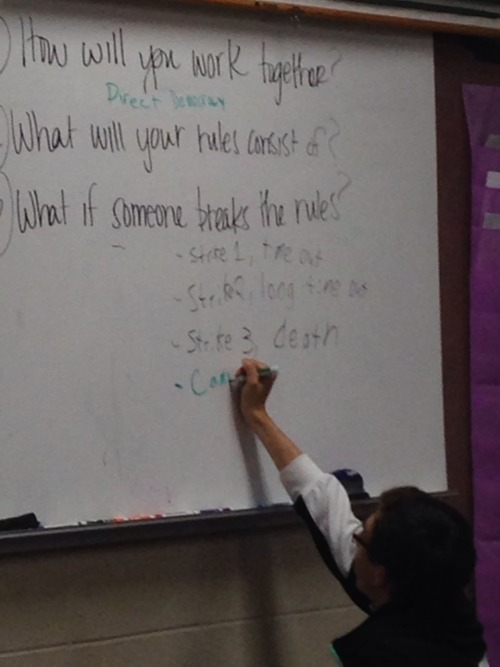 How will you work together?
Direct Democracy
What will your rules consist of?
What if someone breaks the rules?
- Strike 1, time out
- Strike 2, long time out
- Strike 3, death
- Can